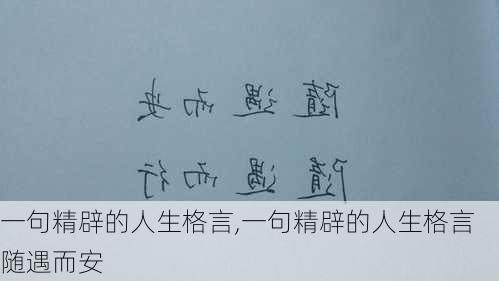 随遇而安
随遇而行
一句精辟的人生格言,一句精辟的人生格言
随遇而安